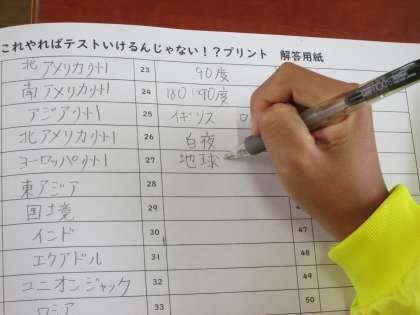 これやればテストいけるんじゃない！？プリント　解答用紙
北アメリカ州 23 90度
南アメリカ州 24 180 90度
アジア州 25 イギリス ロ
北アメリカ州 26 白夜
ヨーロッパ州 27 地球
東アジア 28
国境 29
インド 30 47
エクアドル 31 48
ユニオンジャック 32 49
ロシア 33 50